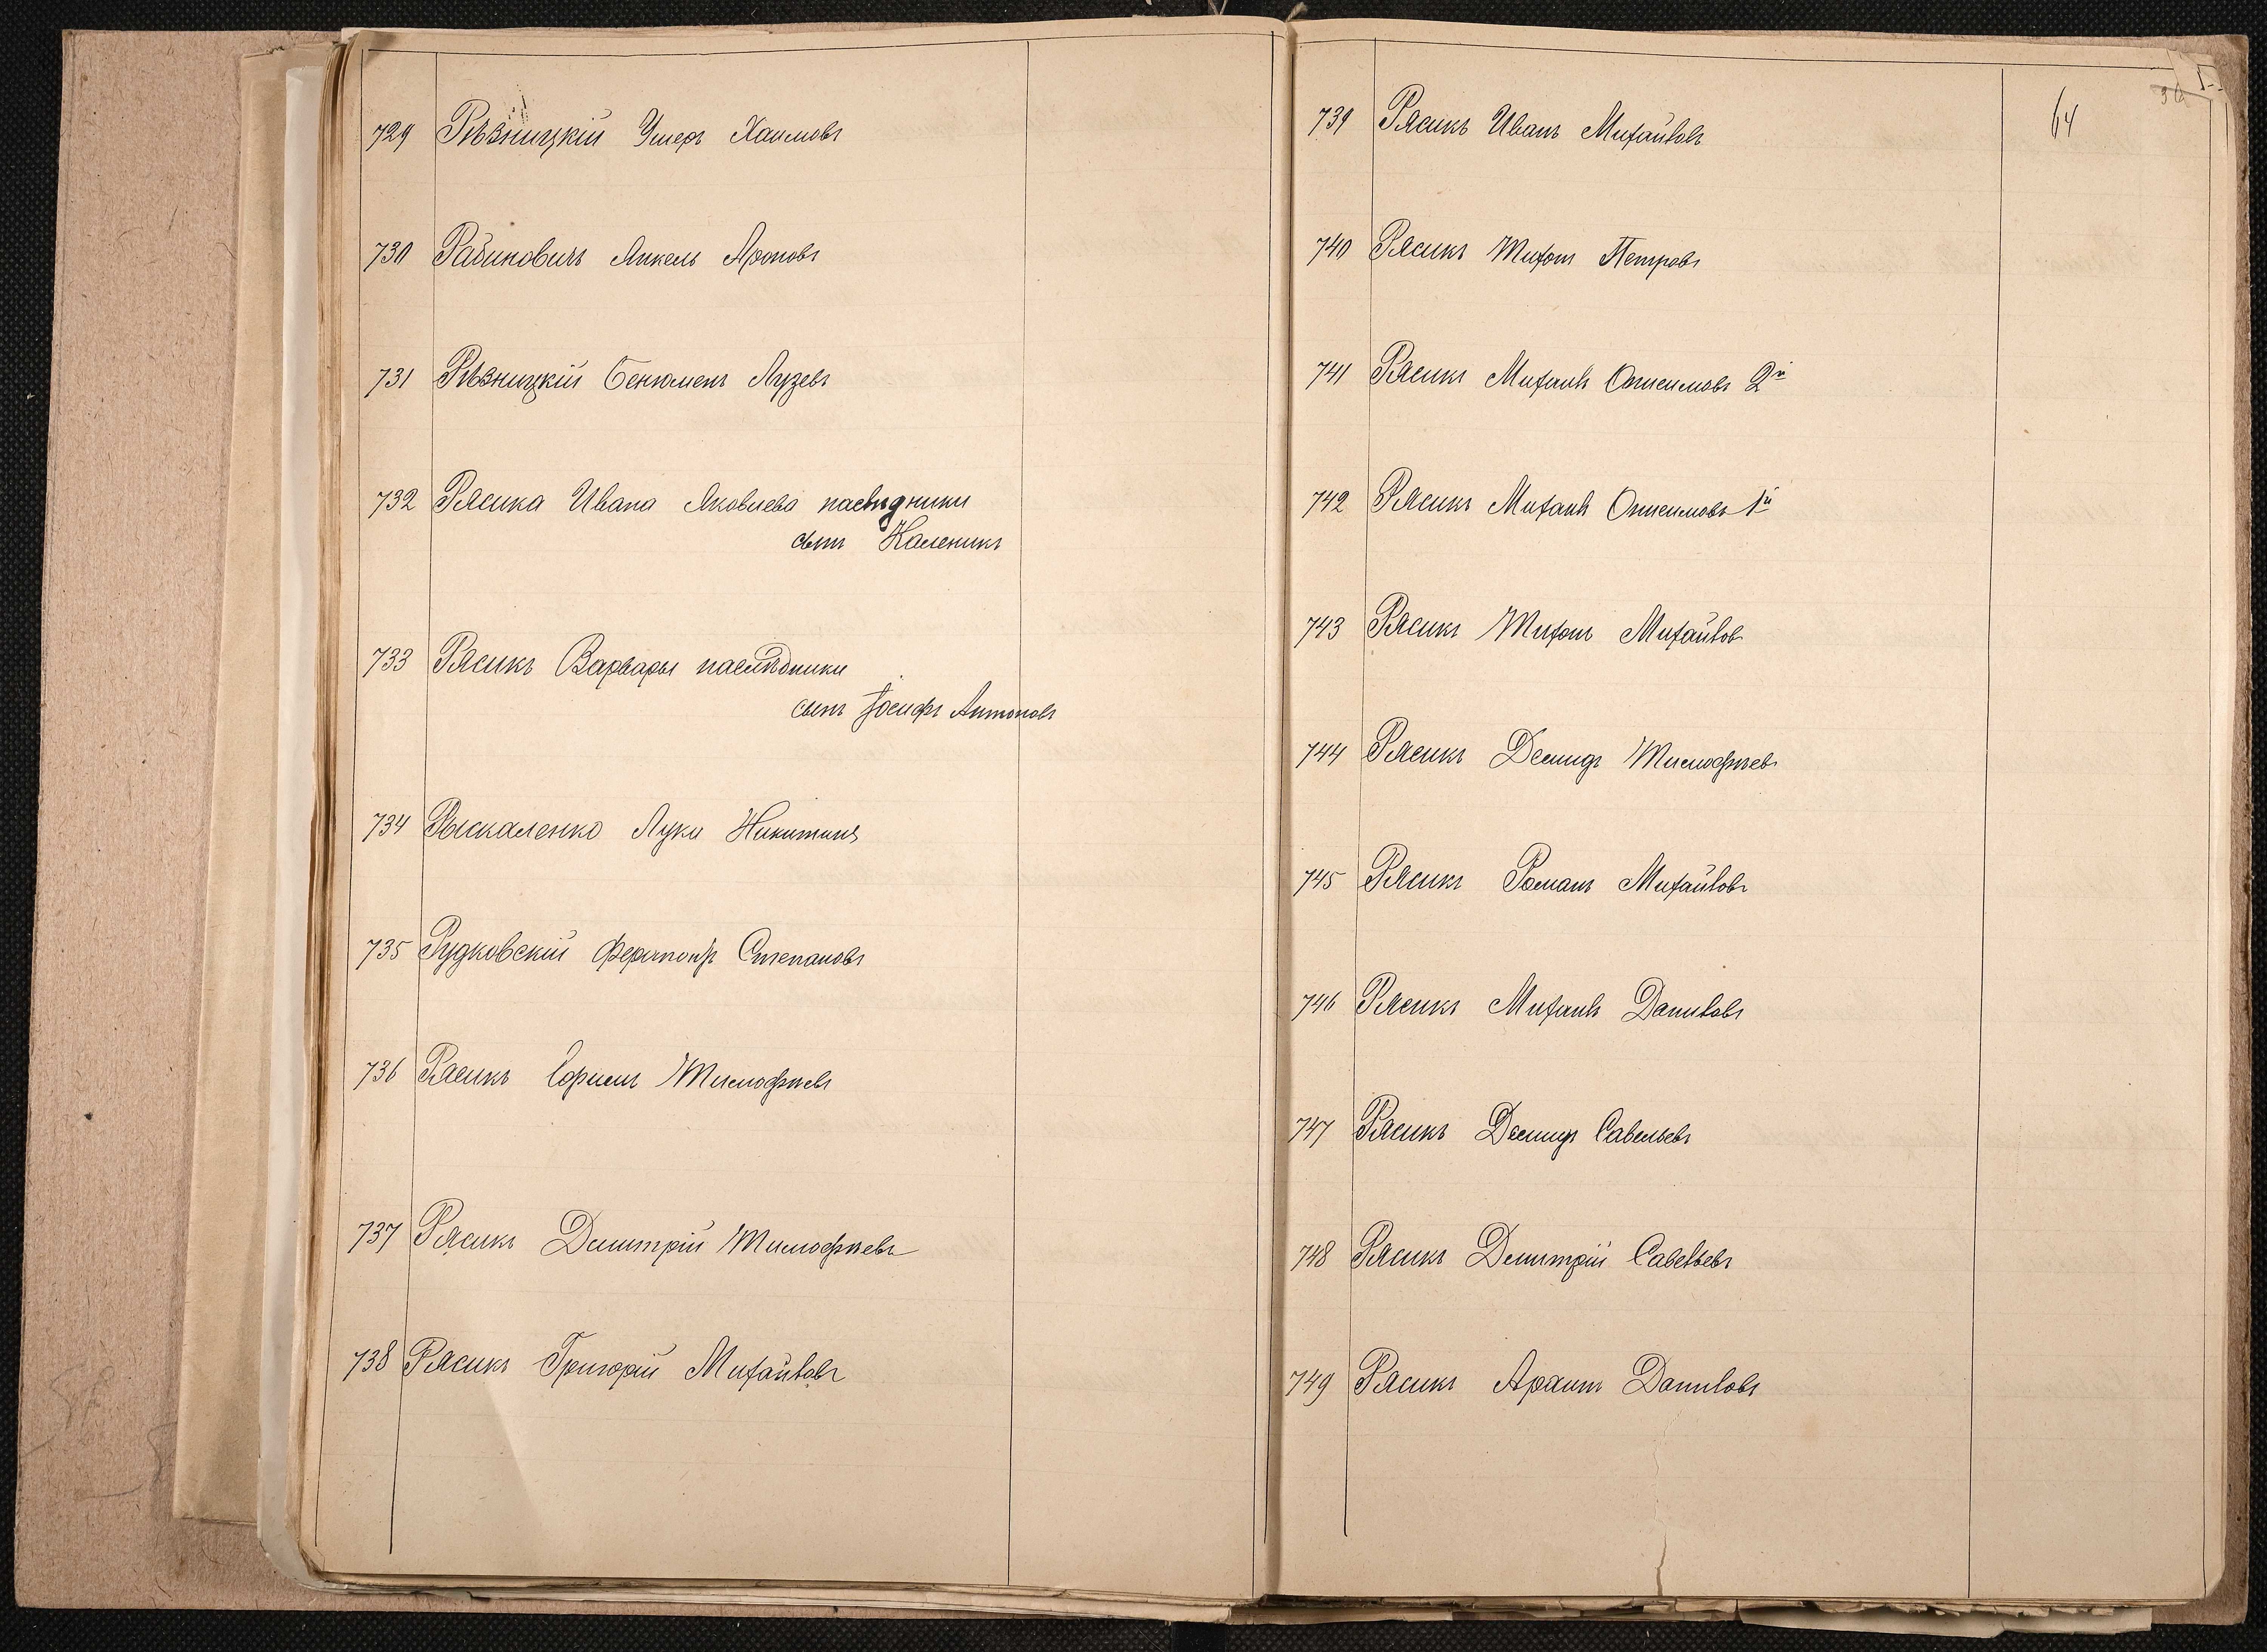 729 Рѣзницкій Ушеръ Хаимовъ
730 Рабиновичъ Янкель Ароновъ
731 Рѣзницкій Бенюменъ Лузевъ
732 Рясика Ивана Яковлева наслѣдники
сынъ Каленикъ
733 Рясикъ Варвары наслѣдники
сынъ Іосифъ Антоновъ
734 Рыскаленко Луки Никитинъ
735 Рудковскій Ферапонтъ Степановъ
736 Рясикъ Ефимъ Тимофѣевъ
737 Рясикъ Дмитрій Тимофѣевъ
738 Рясикъ Григорій Михайловъ
64
739 Рясикъ Иванъ Михайловъ
740 Рясикъ Тихонъ Петровъ
741 Рясикъ Михаилъ Онисимовъ 2й
742 Рясикъ Михаилъ Онисимовъ 1й
743 Рясикъ Тихонъ Михайлов
744 Рясикъ Демидъ Тимофѣевъ
745 Рясикъ Романъ Михайловъ
746 Рясикъ Михаилъ Даниловъ
747 Рясикъ Демидъ Савельевъ
748 Рясикъ Дмитрій Савельевъ
749 Рясикъ Даниловъ